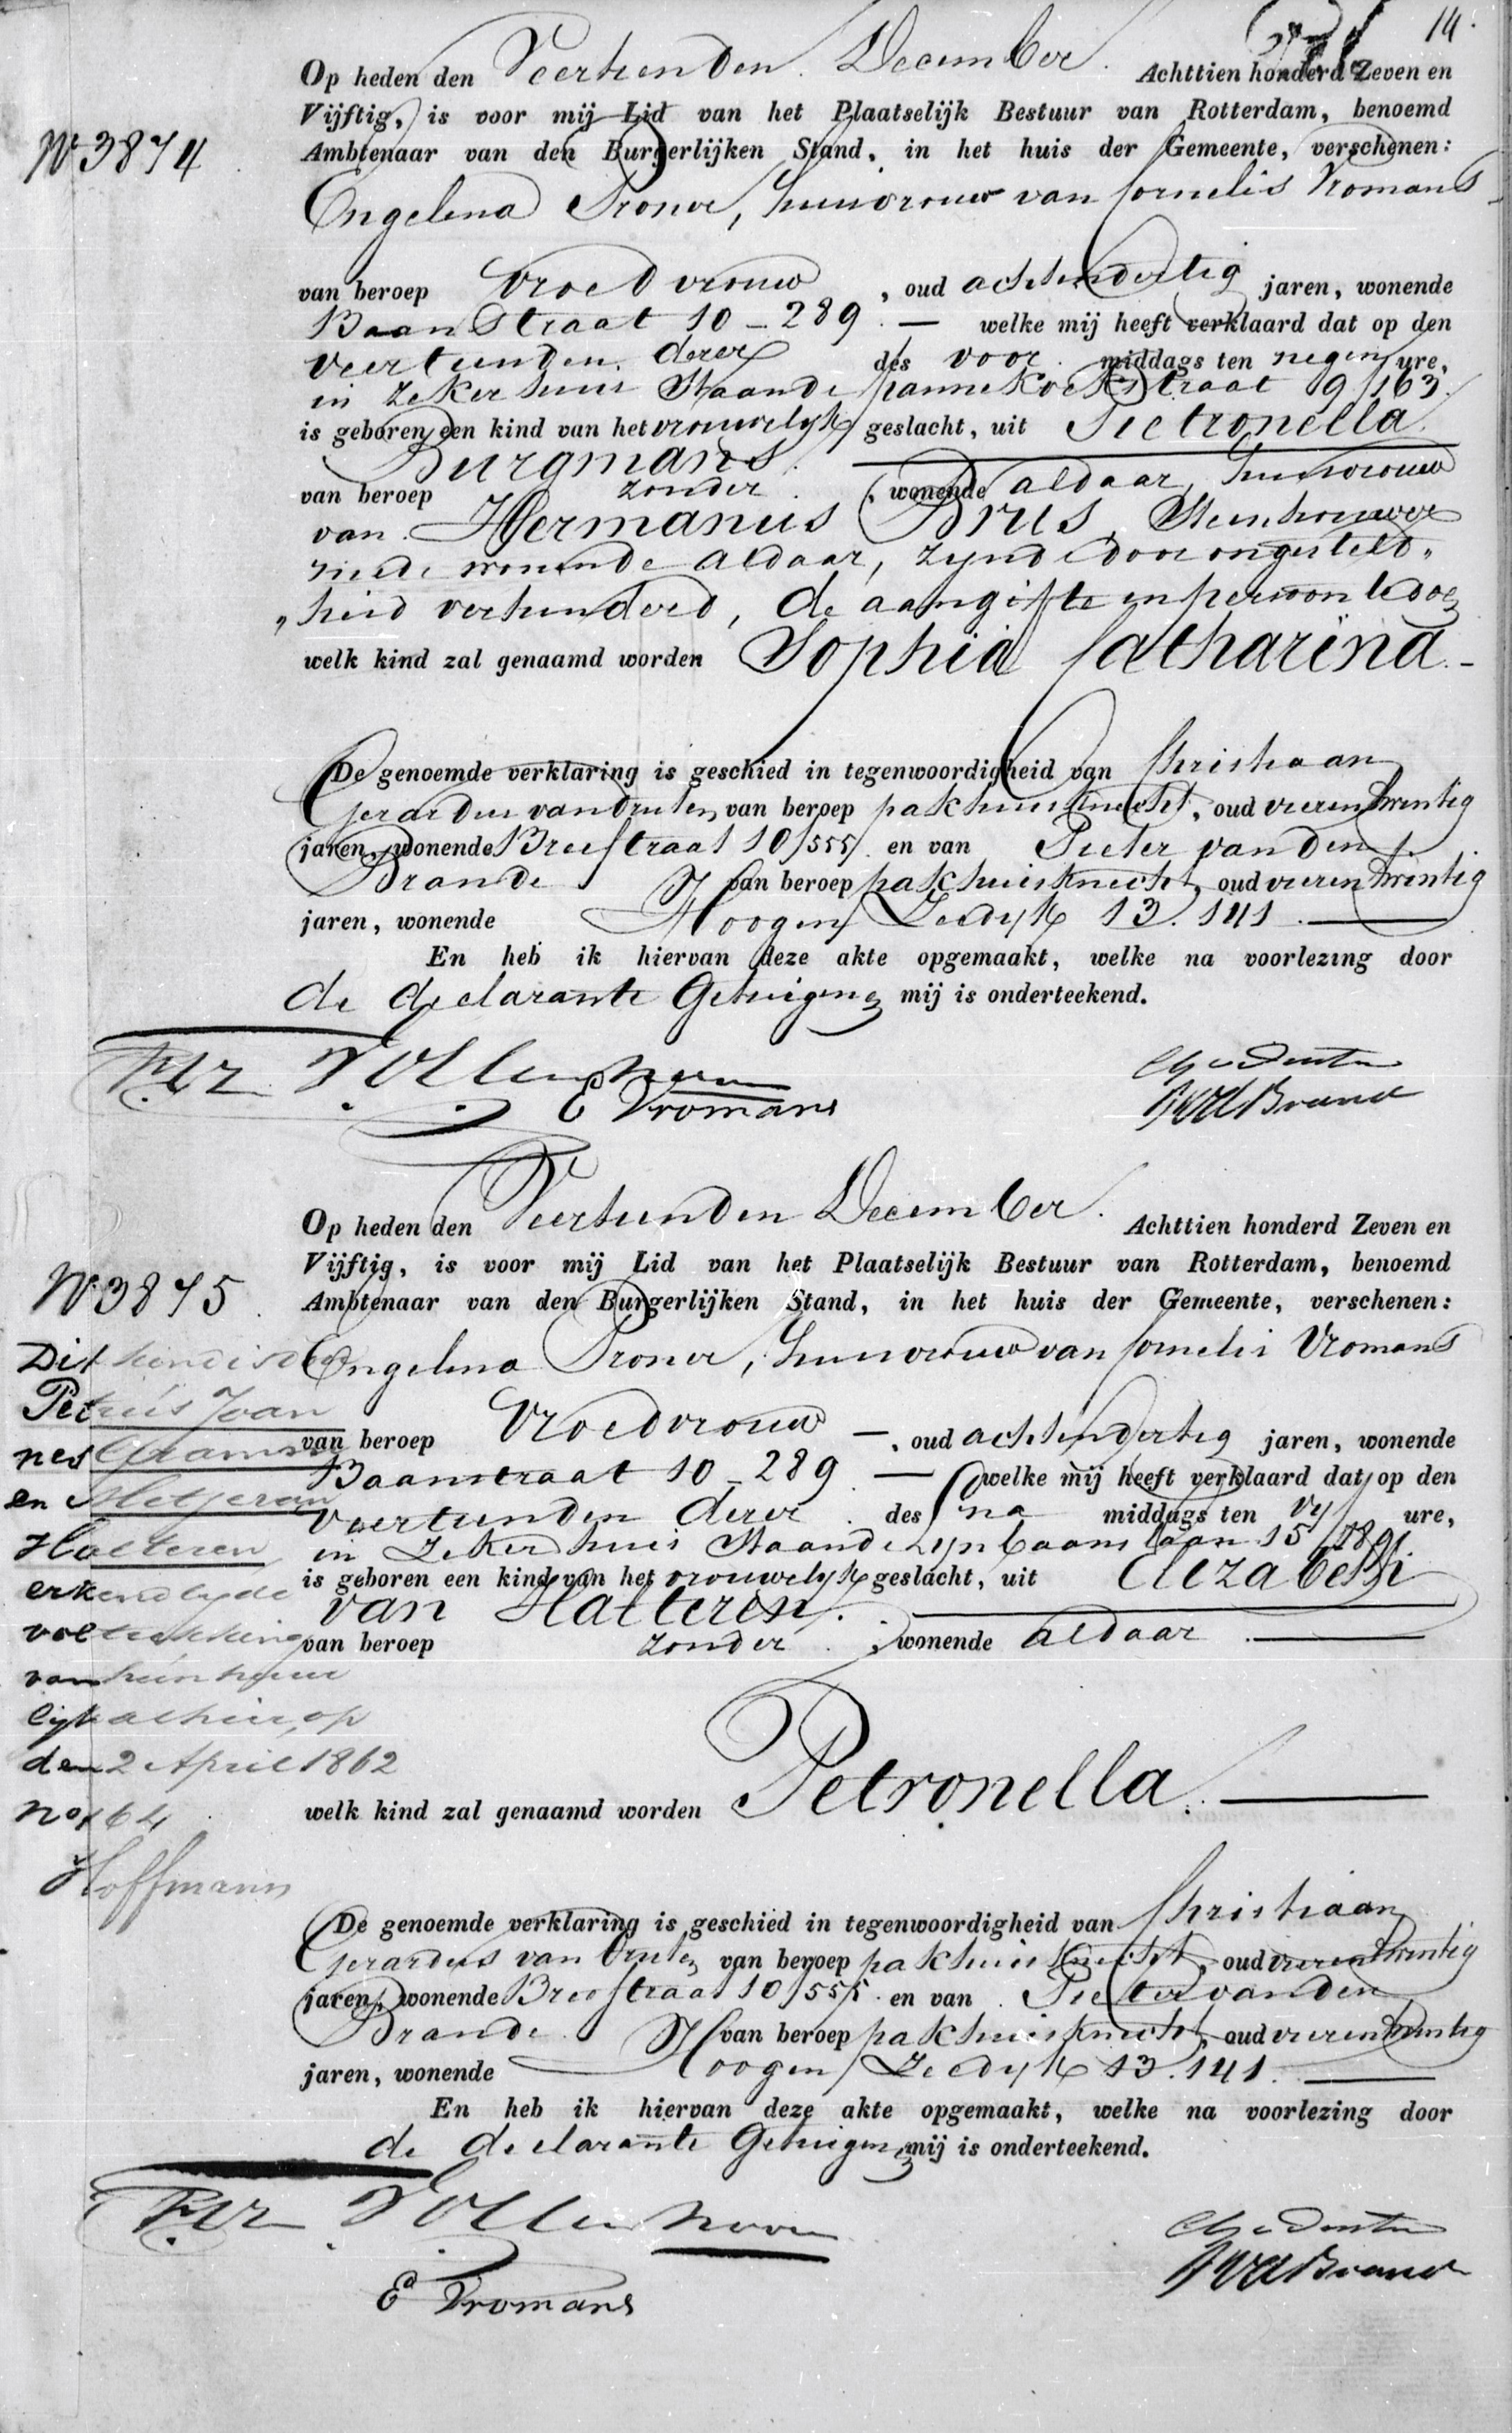 14.
Op heden den Veertienden December Achttien honderd Zeven en
Vijftig, is voor mij Lid van het Plaatselijk Bestuur van Rotterdam, benoemd
No 3874
Ambtenaar van den Burgerlijken Stand, in het huis der Gemeente, verschenen:
Engelina Proner, huisvrouw van Cornelis Vromans
van beroep Vroedvrouw, oud achtendertig jaren, wonende
Baanstraat 10-289. — welke mij heeft verklaard dat op den
veertienden dezer des voor middags ten negen ure,
in zeker huis Staande pannekoekstraat 9/163.
is geboren een kind van het vrouwelyk geslacht, uit Pietronella
Burgmans.
van beroep zonder, wonende aldaar, huisvrouw
van Hermanus Brus, Steenhouwer
mede wonende aldaar, zynde door ongesteld„
„heid verhinderd, de aangifte in persoon te doen
welk kind zal genaamd worden Sophia Catharina.-
De genoemde verklaring is geschied in tegenwoordigheid van Christiaan
Gerardus van Druten van beroep pakhuisknecht, oud vierentwintig
jaren, wonende Breestraat 10/555. en van Pieter van den
Brande van beroep pakhuisknecht, oud vierentwintig
jaren, wonende Hoogen Zeedyk 13.141.
En heb ik hiervan deze akte opgemaakt, welke na voorlezing door
de declarante Getuigen en mij is onderteekend.
E Vromans
PvdBrande
Op heden den Veertienden December. Achttien honderd Zeven en
Vijftig, is voor mij Lid van het Plaatselijk Bestuur van Rotterdam, benoemd
No 3875.
Ambtenaar van den Burgerlijken Stand, in het huis der Gemeente, verschenen:
Engelina Proner, huisvrouw van Cornelis Vromans
van beroep Vroedvrouw —, oud achtendertig jaren, wonende
Baanstraat 10-289 — welke mij heeft verklaard dat op den
veertienden dezer des na middags ten vyf ure,
in Zeker huis Staande Lynbaanslaan 15/289
is geboren een kind van het vrouwelyk geslacht, uit Elizabeth
van Halteren.
van beroep zonder, wonende aldaar
welk kind zal genaamd worden Petronella.
Dit kind is door
Petrus Joan
nes
en
Halteren
erkend by de
voltrekking
van hún huwe
lijk alhier, op
den 2 April 1862
no 164
Hoffmann
De genoemde verklaring is geschied in tegenwoordigheid van Christiaan
Gerardus van Druten van beroep pakhuisknecht, oud vierentwintig
jaren, wonende Breestraat 10/555. en van Pieter van den
Brande van beroep pakhuisknecht, oud vierentwintig
jaren, wonende Hoogen Zeedyk 13.141.
En heb ik hiervan deze akte opgemaakt, welke na voorlezing door
de declarante Getuigen en mij is onderteekend.
E Vromans
PvdBrande